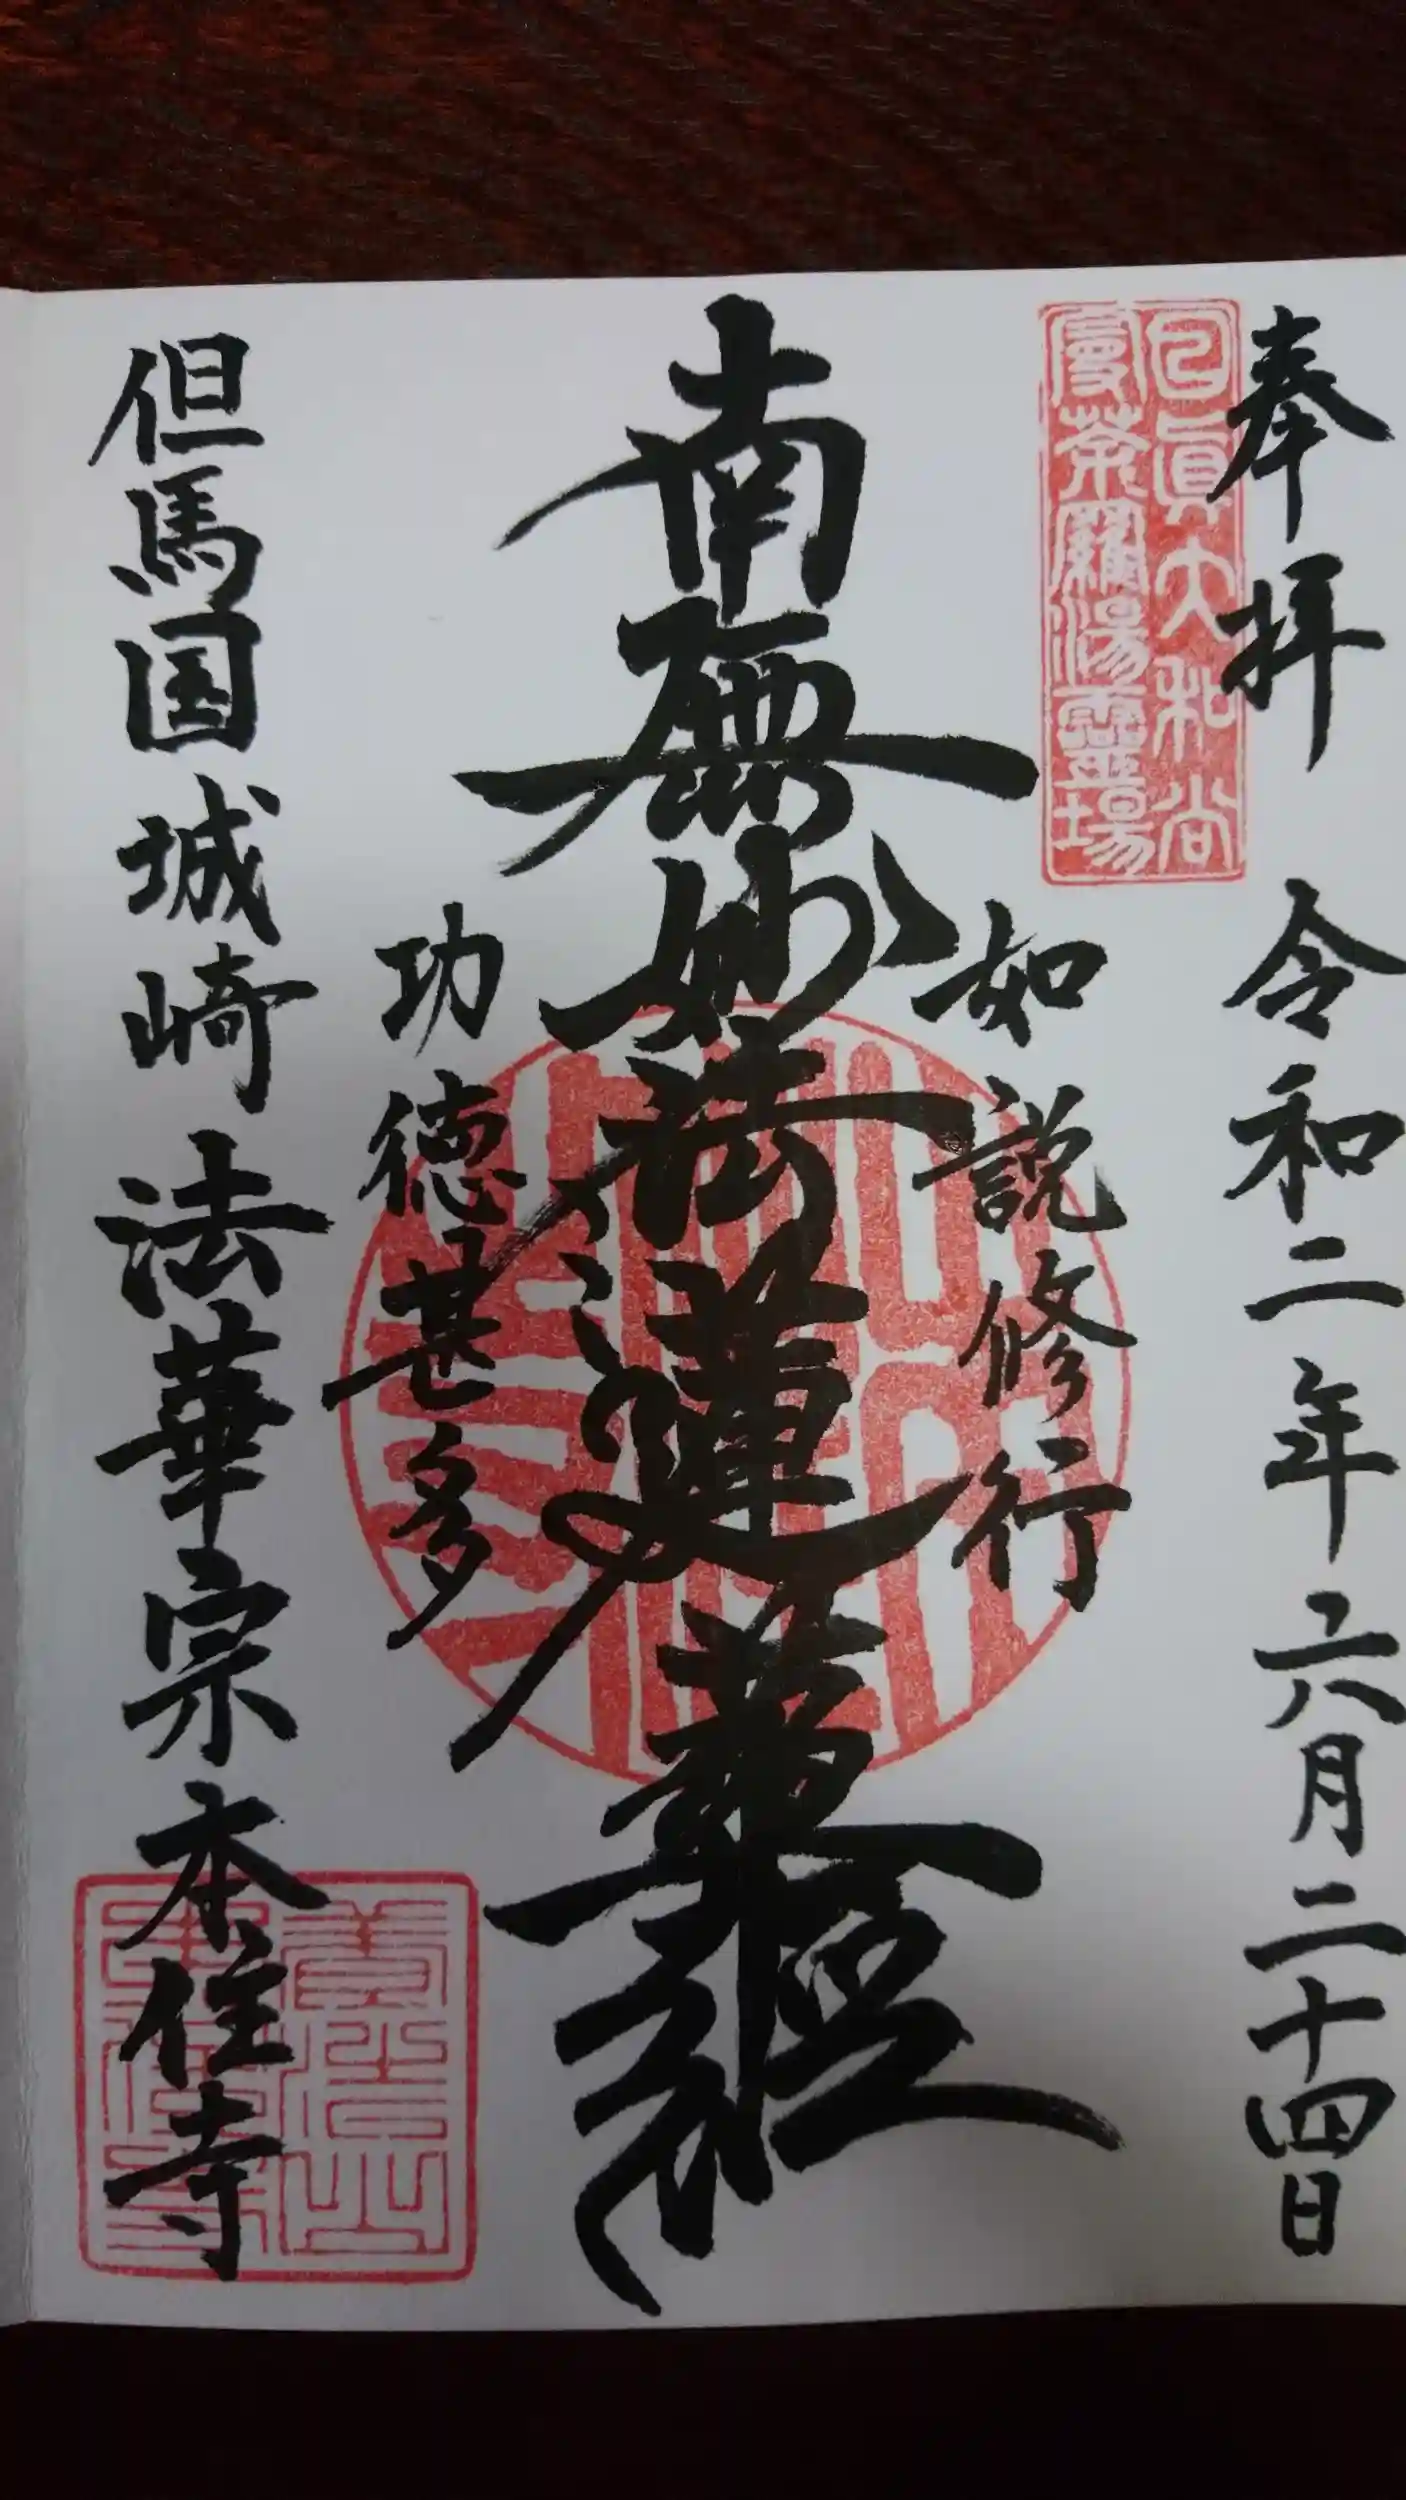 奉拝 令和二年六月二十四日
日眞大和尚
曼荼羅湯靈場
如説修行
南無妙法蓮華経
功徳甚多
但馬国城崎法華宗本住寺
本住寺